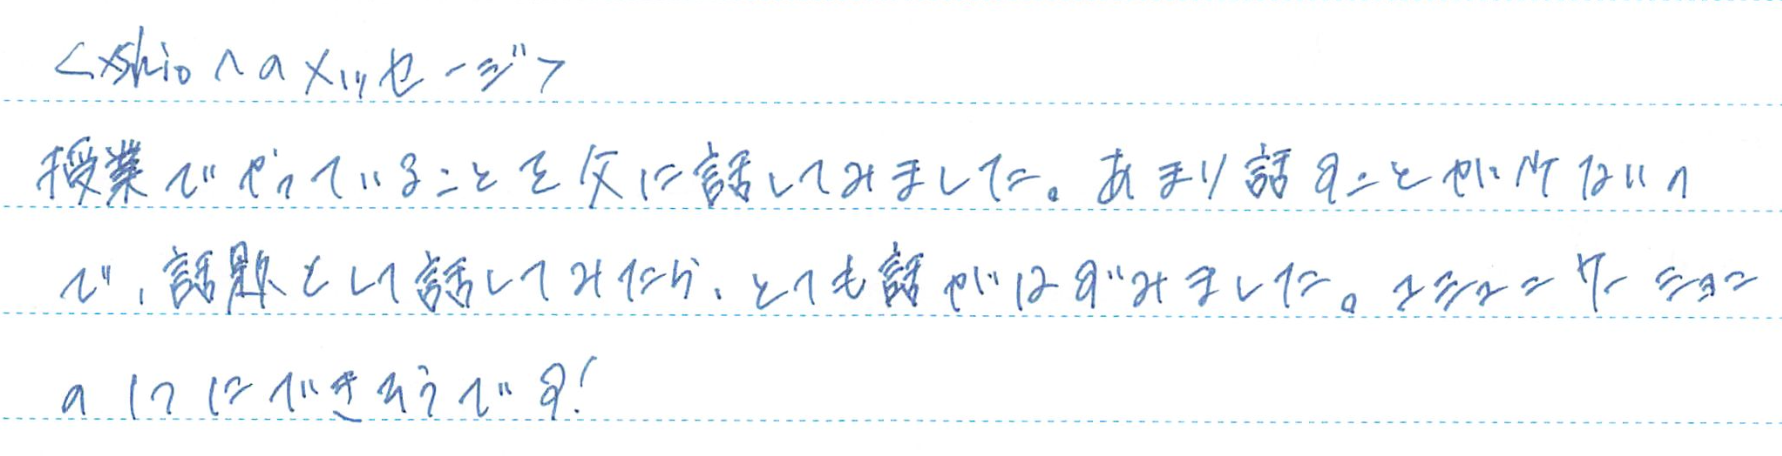 <xshioへのメッセージ>
授業でやっていることを父に話してみました。あまり話すことが少ないの
で、話題として話してみたら、とても話がはずみました。コミュニケーション
の1つにできそうです!